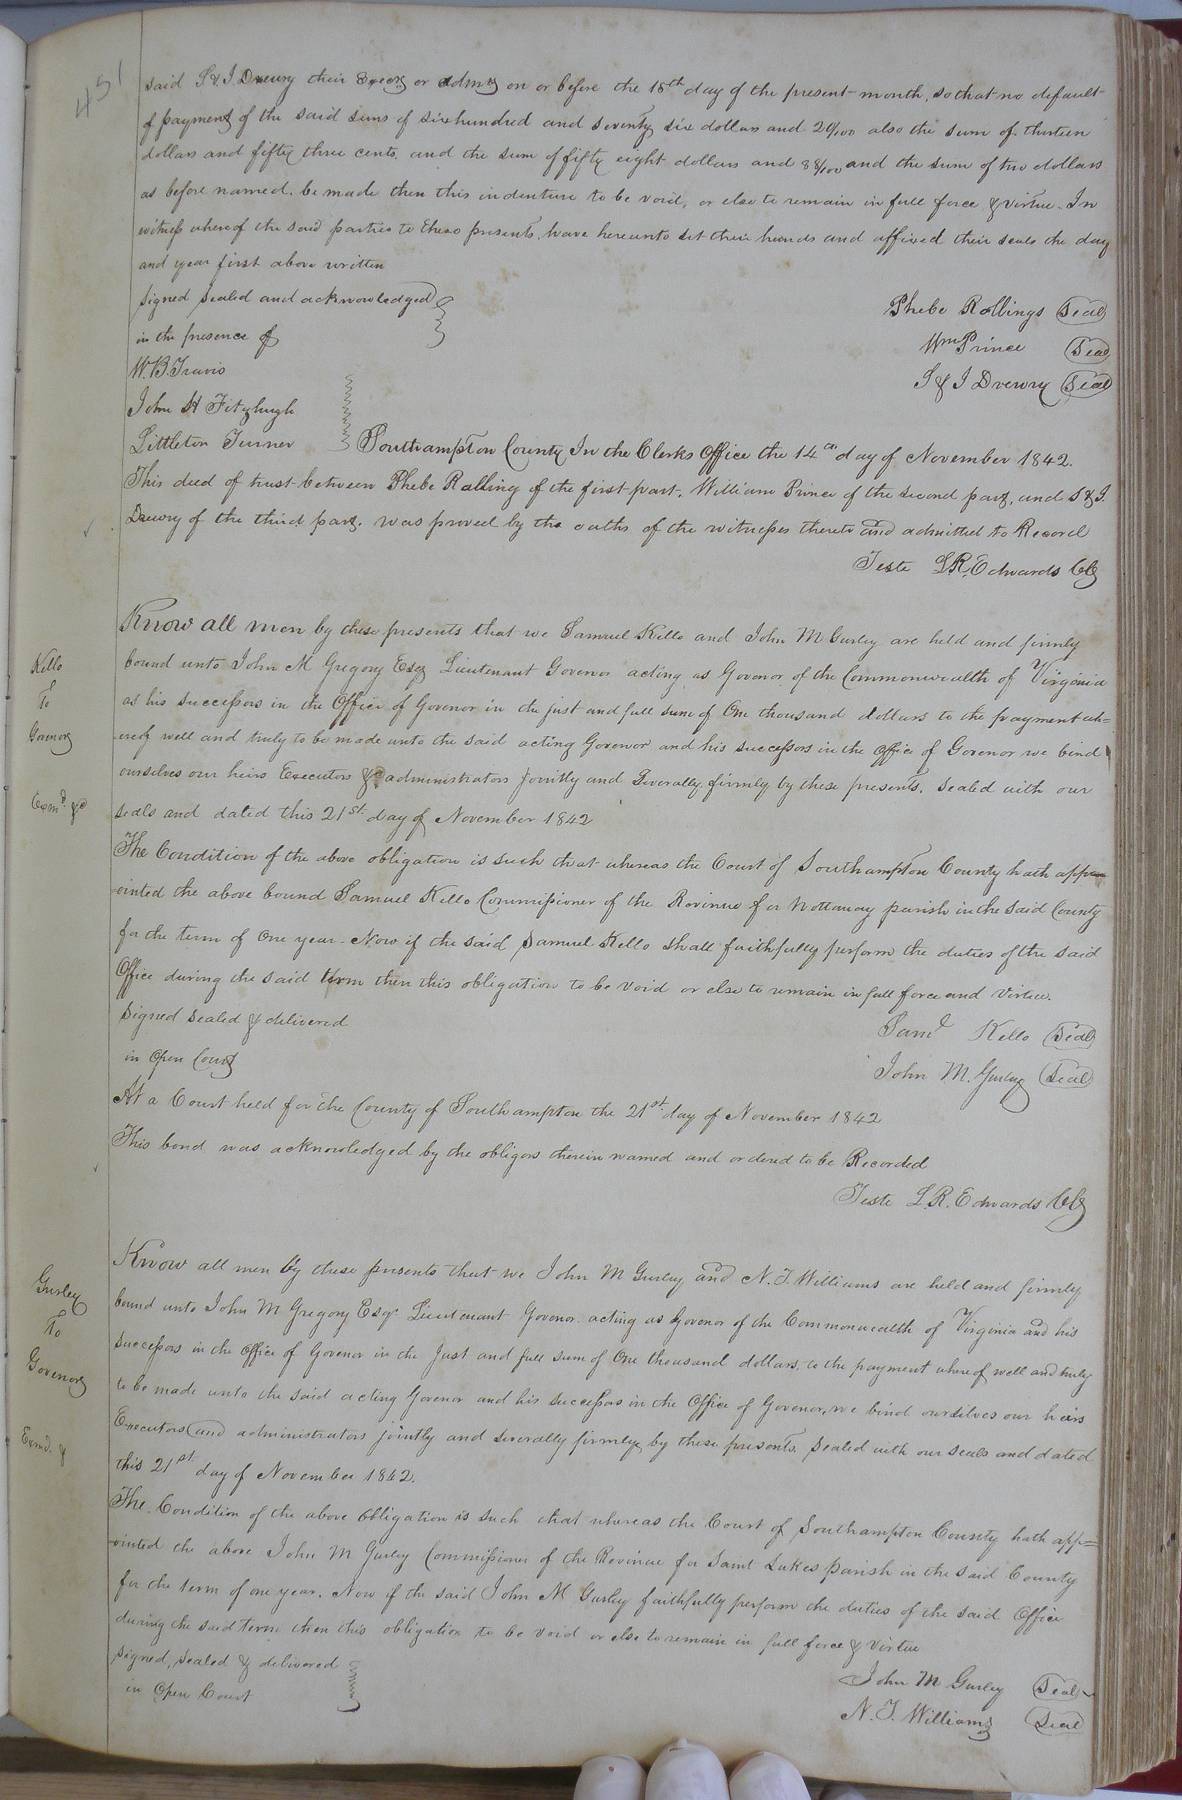 451
said S & J Drewry their Execrs or admrs on or before the 18th day of the present month, so that no default
of payment of the said sums of six hundred and seventy six dollars and 20/100 also the sum of thirteen
dollars and fifty three cents. and the sum of fifty eight dollars and 88/100 and the sum of two dollars
as before named. be made then this indenture to be void, or else to remain in full force & virtue. In
witness whereof the said parties to these presents. have hereunto set their hands and affixed their seals the day
and year first above written
Signed Sealed and acknowledged
in the presence of
Phebe Rollings Seal
Wm Prince Seal
S & J Drewry Seal
W. B. Travis
John H Fitzhugh
Littleton Turner
Southampton County In the Clerks Office the 14th day of November 1842.
This deed of trust between Phebe Rolling of the first part. William Prince of the second part, and S & J.
Drewry of the third part. was proved by the oaths of the witnesses thereto and admitted to Record
Teste L. R. Edwards CC
Kello
To
Govenor
Exmd. &c
Know all men by these presents that we Samuel Kello and John M Gurley are held and firmly
bound unto John M Gregory Esqr Lieutenant Govenor acting as Govenor of the Commonwealth of Virginia
as his successors in the Office of Govenor in the just and full sum of One thousand dollars to the payment wh=
ereof well and truly to be made unto the said acting Govenor and his successors in the office of Govenor we bind
ourselves our heirs Executors & administrators jointly and Severally firmly by these presents. Sealed with our
seals and dated this 21st day of November 1842
The Condition of the above obligation is such that whereas the Court of Southampton County hath appo
ointed the above bound Samuel Kello Commissioner of the Revinue for Nottaway parish in the said County
for the term of One year. Now if the said Samuel Kello shall faithfully perform the duties of the said
Office during the said term then this obligation to be void or else to remain in full force and virtue.
Signed Sealed & delivered
in Open Court
Saml Kello Seal
John M. Gurley Seal
At a Court held for the County of Southampton the 21st day of November 1842
This bond was acknowledged by the obligors therein named and ordered to be Recorded
Teste L. R. Edwards CC
Gurley
To
Govenor
Exmd. &
Know all men by these presents that we John M Gurley and N. T. Williams are held and firmly
bound unto John M Gregory Esqr Lieutenant Govenor acting as Govenor of the Commonwealth of Virginia and his
successors in the office of Govenor in the Just and full sum of One thousand dollars. to the payment whereof well and truly
to be made unto the said acting Govenor and his successors in the Office of Govenor, we bind ourselves our heirs
Executors and administrators jointly and severally firmly by these presents. Sealed with our seals and dated
this 21st day of November 1842.
The Condition of the above Obligation is such that whereas the Court of Southampton County hath app=
ointed the above John M Gurley Commissioner of the Revinue for Saint Lukes parish in the said County
for the term of one year. Now if the said John M Gurley faithfully perform the duties of the said Office
during the said term then this obligation to be void or else to remain in full force & virtue
Signed, Sealed & delivered
in Open Court
John M Gurley Seal
N. T. Williams Seal